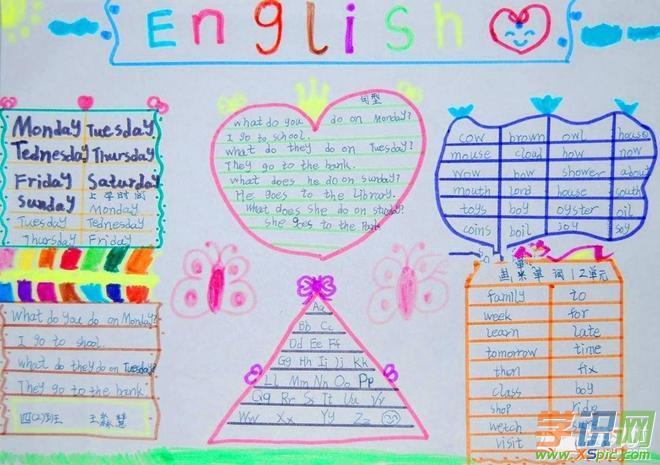 English
Monday Tuesday
Tednesday Thursday
Friday Saturday
Sunday 上学时间
Monday
Tuesday Tednesday
Thursday Friday
What do you do on Monday?
I go to shool.
what do they do on Tuesday?
They go to the bank.
四(2)班 王淼慧
句型
what do you do on Monday?
I go to school.
what do they do on Tuesday?
They go to the bank.
what does he do on Sunday?
He goes to the Library.
What does she do on
she goes to the Park
Aa
Bb Cc
Dd Ee Ff
Gg Hh Ii Jj Kk
Ll Mm Nn Oo Pp
Qq Rr Ss Tt Uu Vv
Ww Xx Yy Zz
cow brown owl house
mouse cloud how now
wow how shower about
mouth lord house south
toys boy oyster oil
coins boil joy soy
单词1 2单元
family to
week for
learn late
tomorrow time
then fix
class boy
shop ride
watch
visit
学识网
www.xspic.com